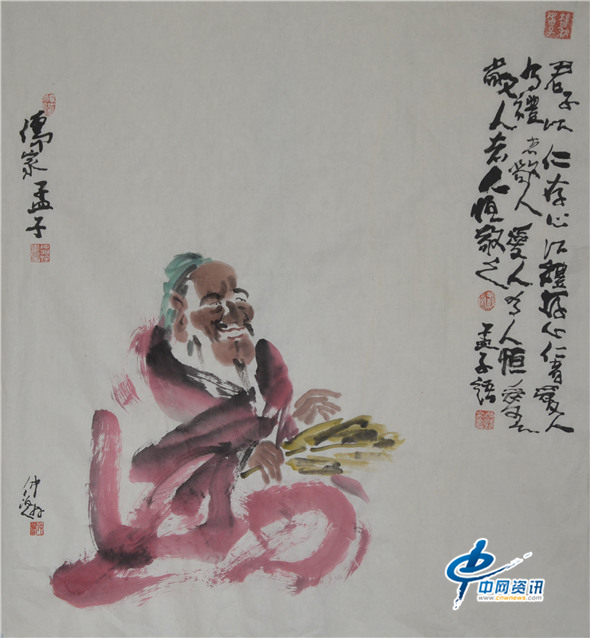 君子以仁存心以禮存心仁者愛人
有禮者敬人愛人者人恒愛之
敬人者人恒敬之
孟子語
儒家孟子
中网资讯
www.chanews.com